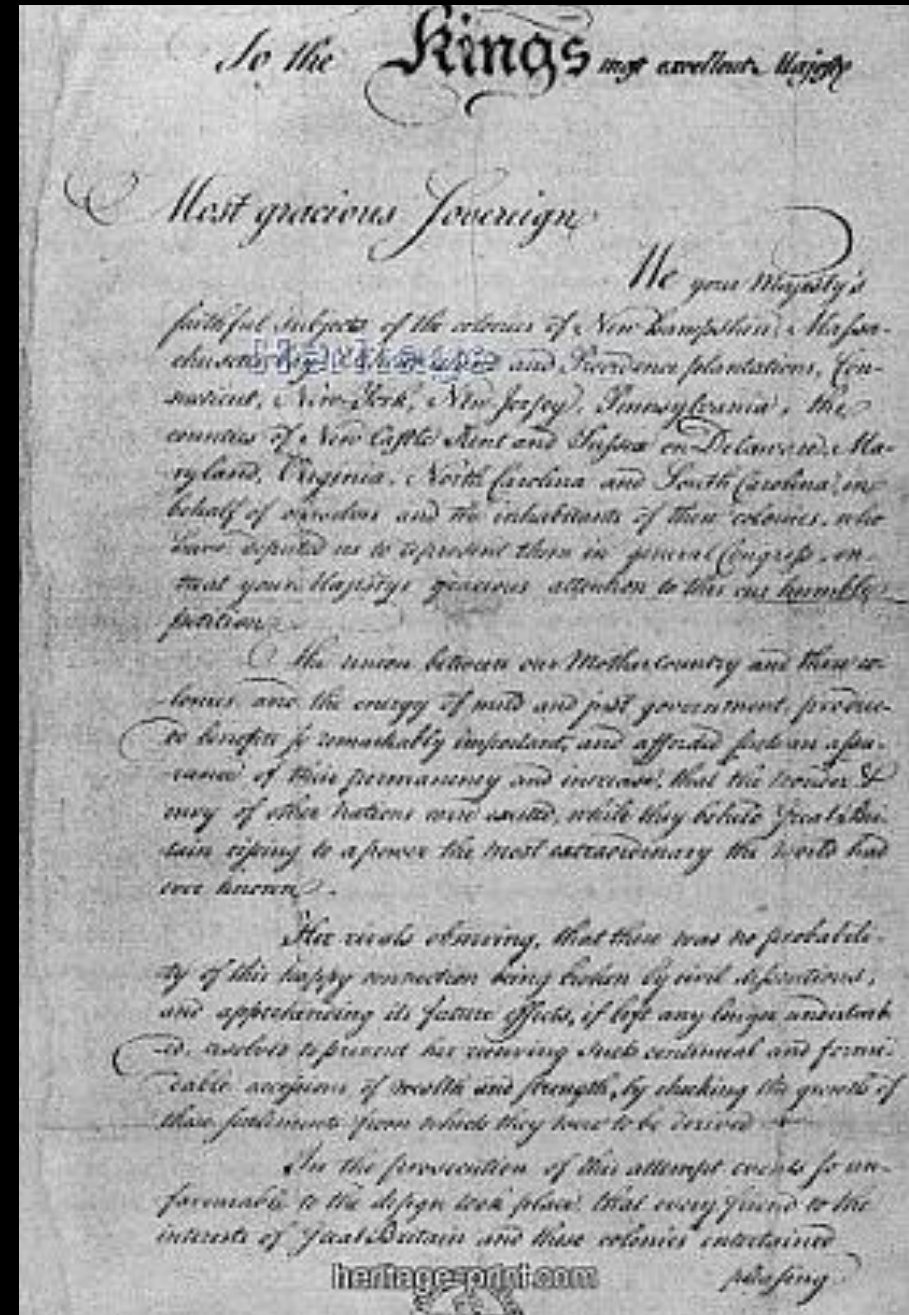 To the Kings most excellent Majesty
Most gracious Sovereign,
We your Majesty's
faithful subjects of the colonies of New Hampshire, Massa-
chusetts bay, Rhode island and Providence plantations, Con-
necticut, New-York, New Jersey, Pennsylvania, the
counties of New Castle Kent and Sussex on Delaware, Ma-
ryland, Virginia, North Carolina and South Carolina, in
behalf of ourselves and the inhabitants of these colonies, who
have deputed us to represent them in general Congress, en-
treat your Majestys gracious attention to this our humble
petition.
The union between our Mother country and these co-
lonies, and the energy of mild and just government, produc-
ed benefits so remarkably important, and afforded such an assu-
rance of their permanency and increase, that the wonder &
envy of other Nations were excited, while they beheld Great Bri-
tain rising to a power the most extraordinary the world had
ever known.
Her rivals observing, that there was no probabili-
ty of this happy connection being broken by civil dissentions,
and apprehending its future effects, if left any longer undisturb-
ed, resolved to prevent her receiving such continual and formi-
dable accessions of wealth and strength, by checking the growth of
these settlements from which they were to be derived.
In the prosecution of this attempt events so un-
favourable to the design took place, that every friend to the
interests of Great Britain and these colonies entertained
pleasing
Heritage
heritage-print.com